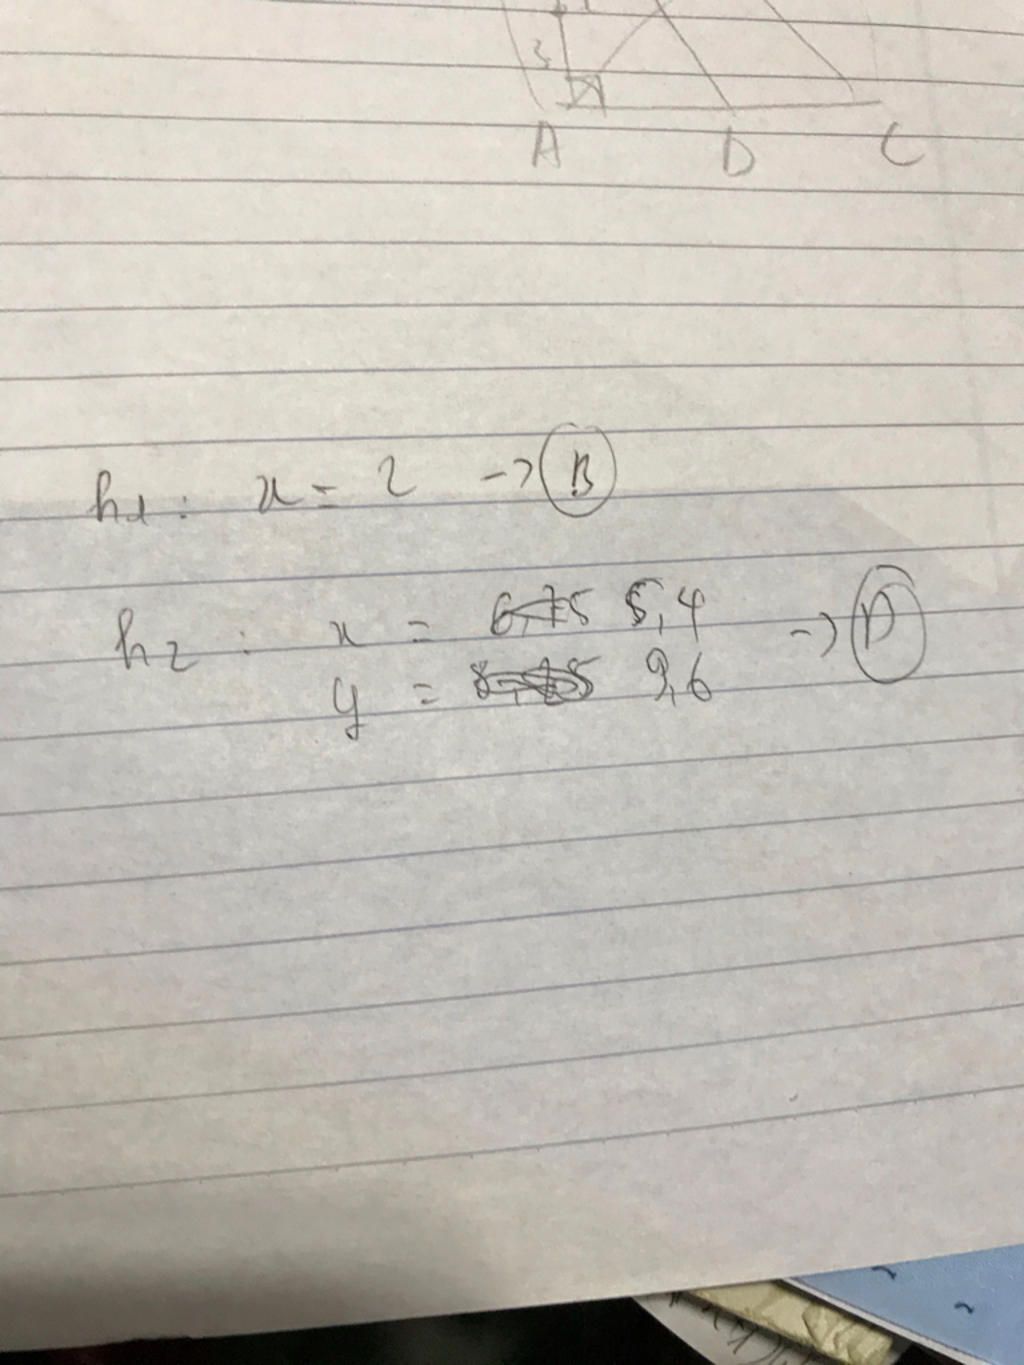 3
A D C
h1: x = 2 -> B
h2: x = 6,75 5,4 -> D
y = 9,6